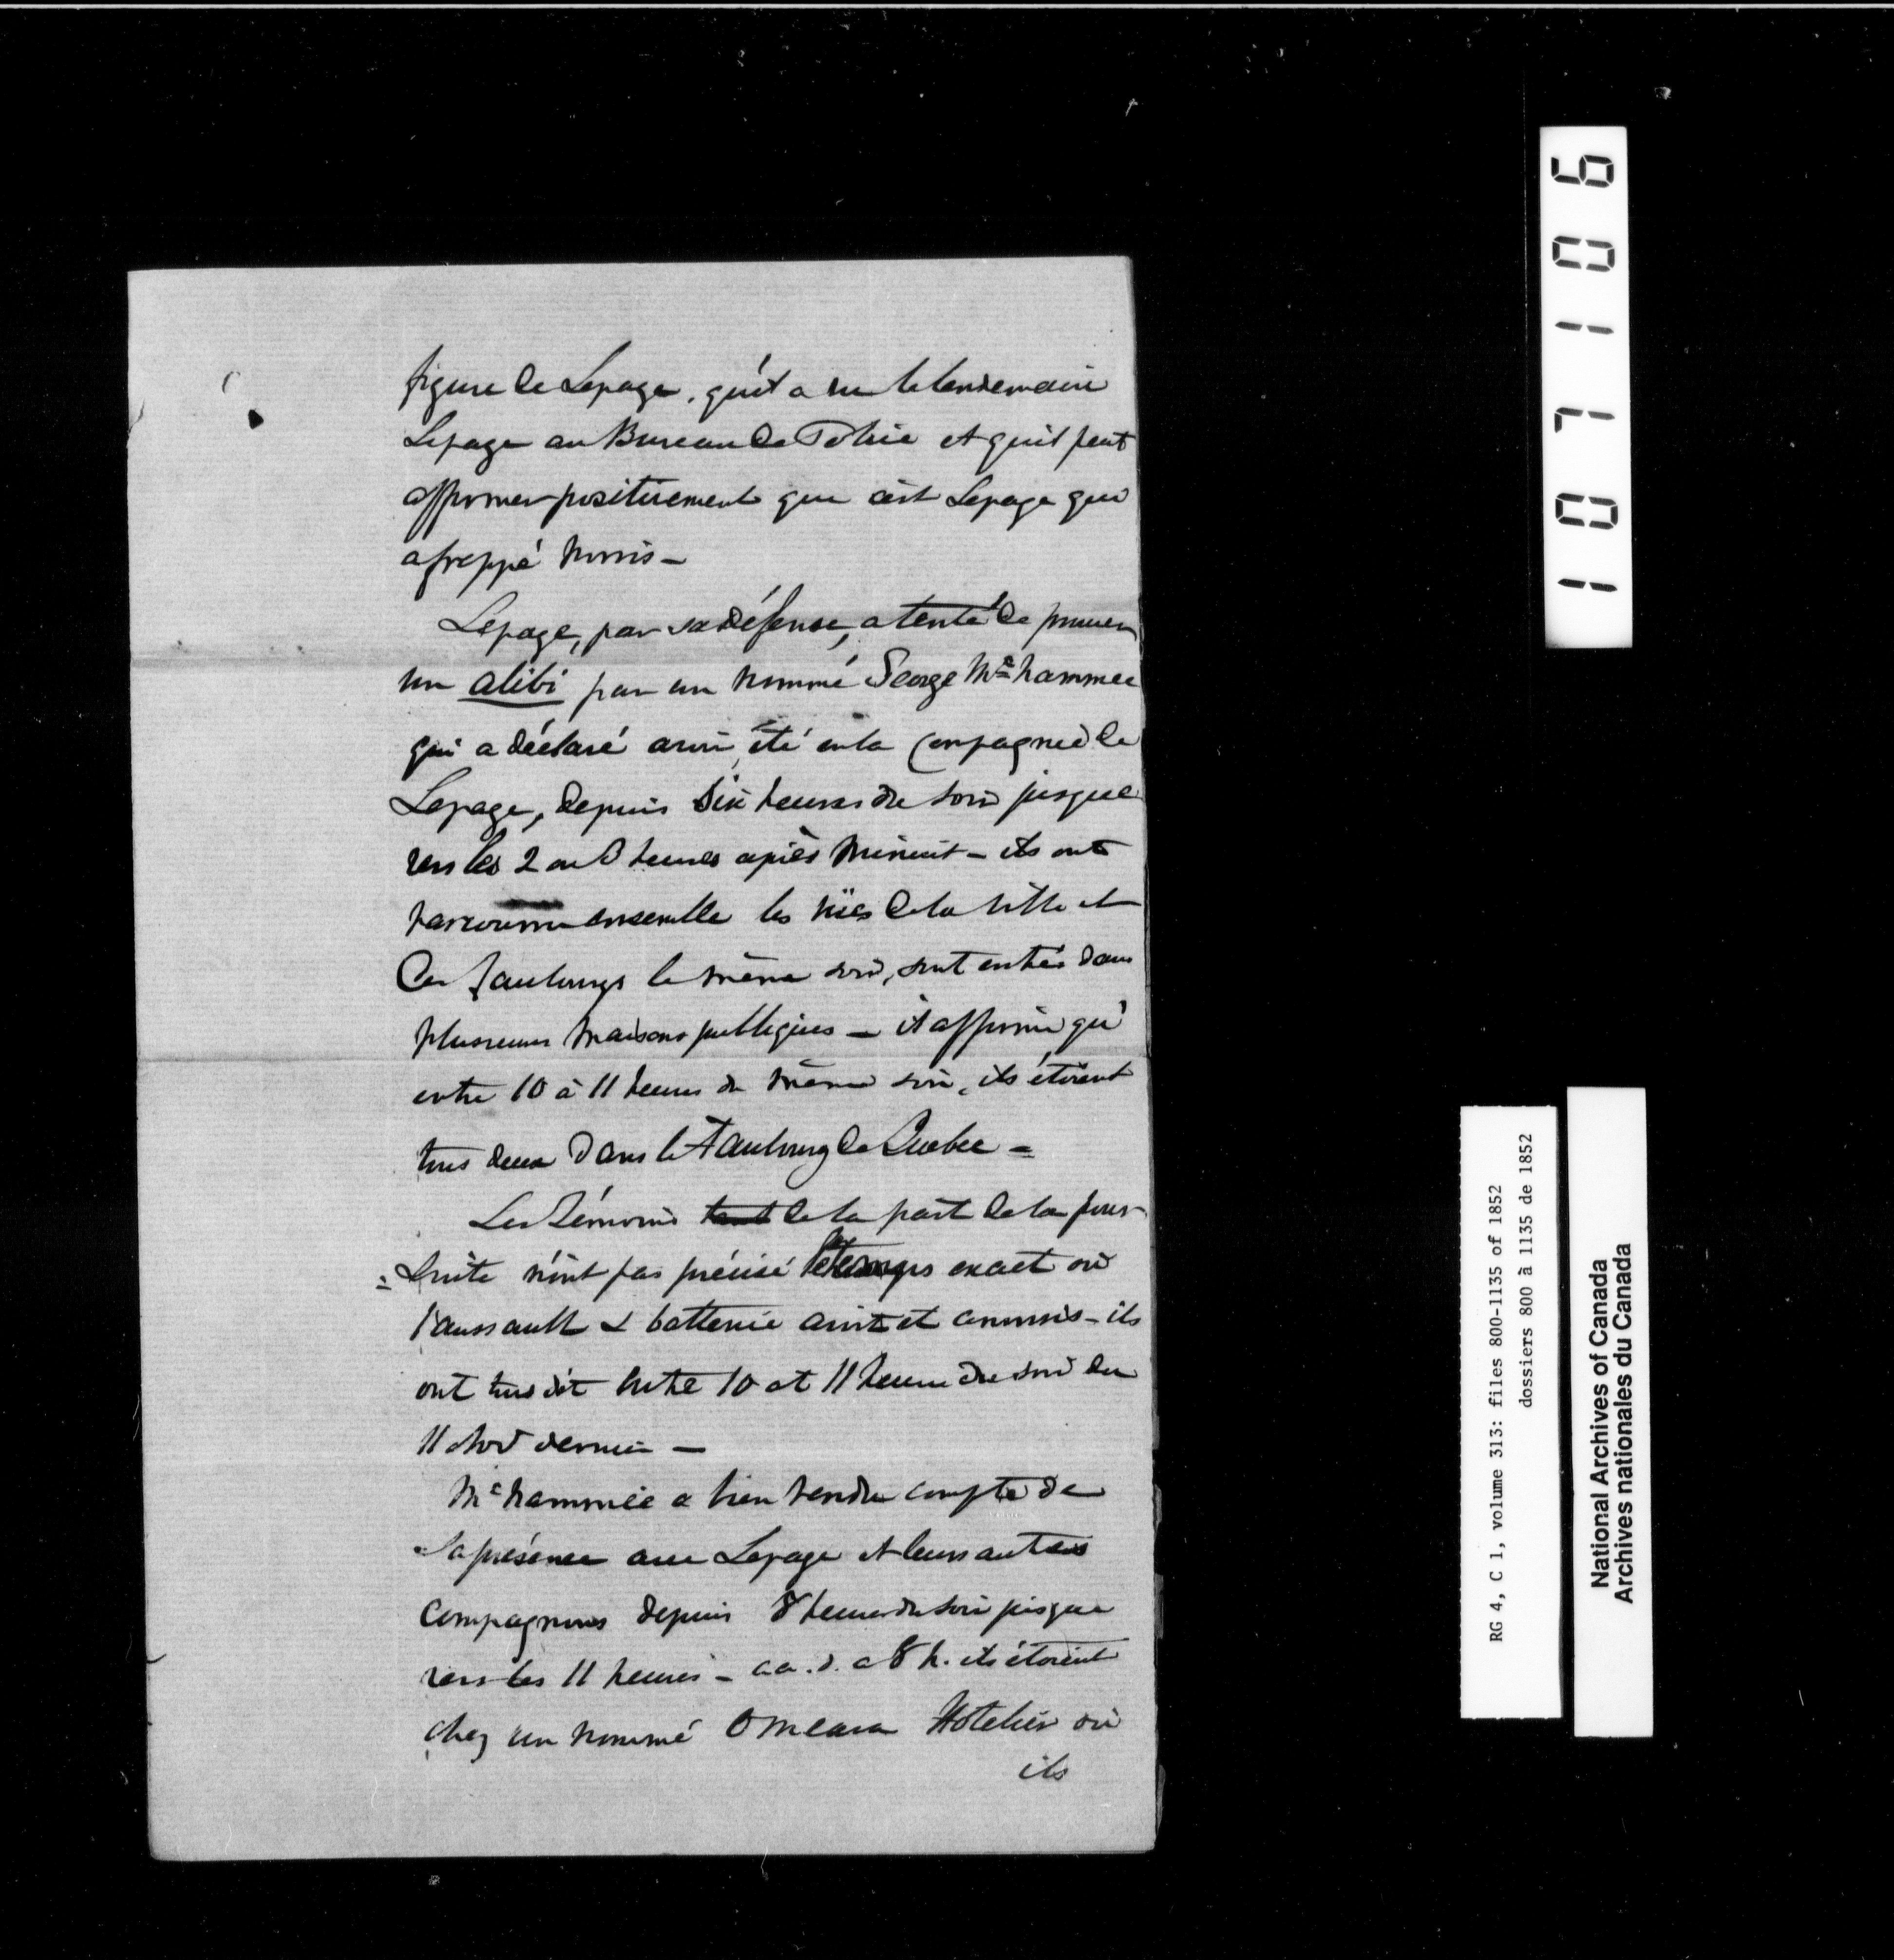 figure de Lepage, qu'il a vu le lendemain
Lepage au Bureau de Police et qu'il peut
affirmer positivement que c'est Lepage qui
a frappé Morris —
Lepage, par sa défense, a tenté de prouver
un alibi par un nommé George Mc Nammee
qui a déclaré avoir été en la Compagnie de
Lepage, depuis Six heures du soir jusque
vers les 2 ou 3 heures après Minuit — ils ont
parcouru ensemble les rües de la ville et
des fauburgs le même soir, sont entrés dans
plusieurs Maisons publiques — il affirme qu'
entre 10 à 11 heures du même soir, ils étoient
tous deux dans le Faubourg de Quebec =
Les Témoins tant de la part de la pour-
=suite n'ont pas précisé le temps exact où
l'aussault & batterie avoit été commis — ils
ont tous dit entre 10 et 11 heures du soir du
11 Nov dernier —
Mc Nammée a bien rendu compte de
sa présence avec Lepage et leurs autres
Compagnons depuis 8 heures du soir jusque
vers les 11 heures — c.a.d. a 8 h. ils étoient
chez un nommé O Meara Hotelier où
ils
1071106
RG 4, C 1, volume 313: files 800-1135 of 1852
dossiers 800 à 1135 de 1852
National Archives of Canada
Archives nationales du Canada